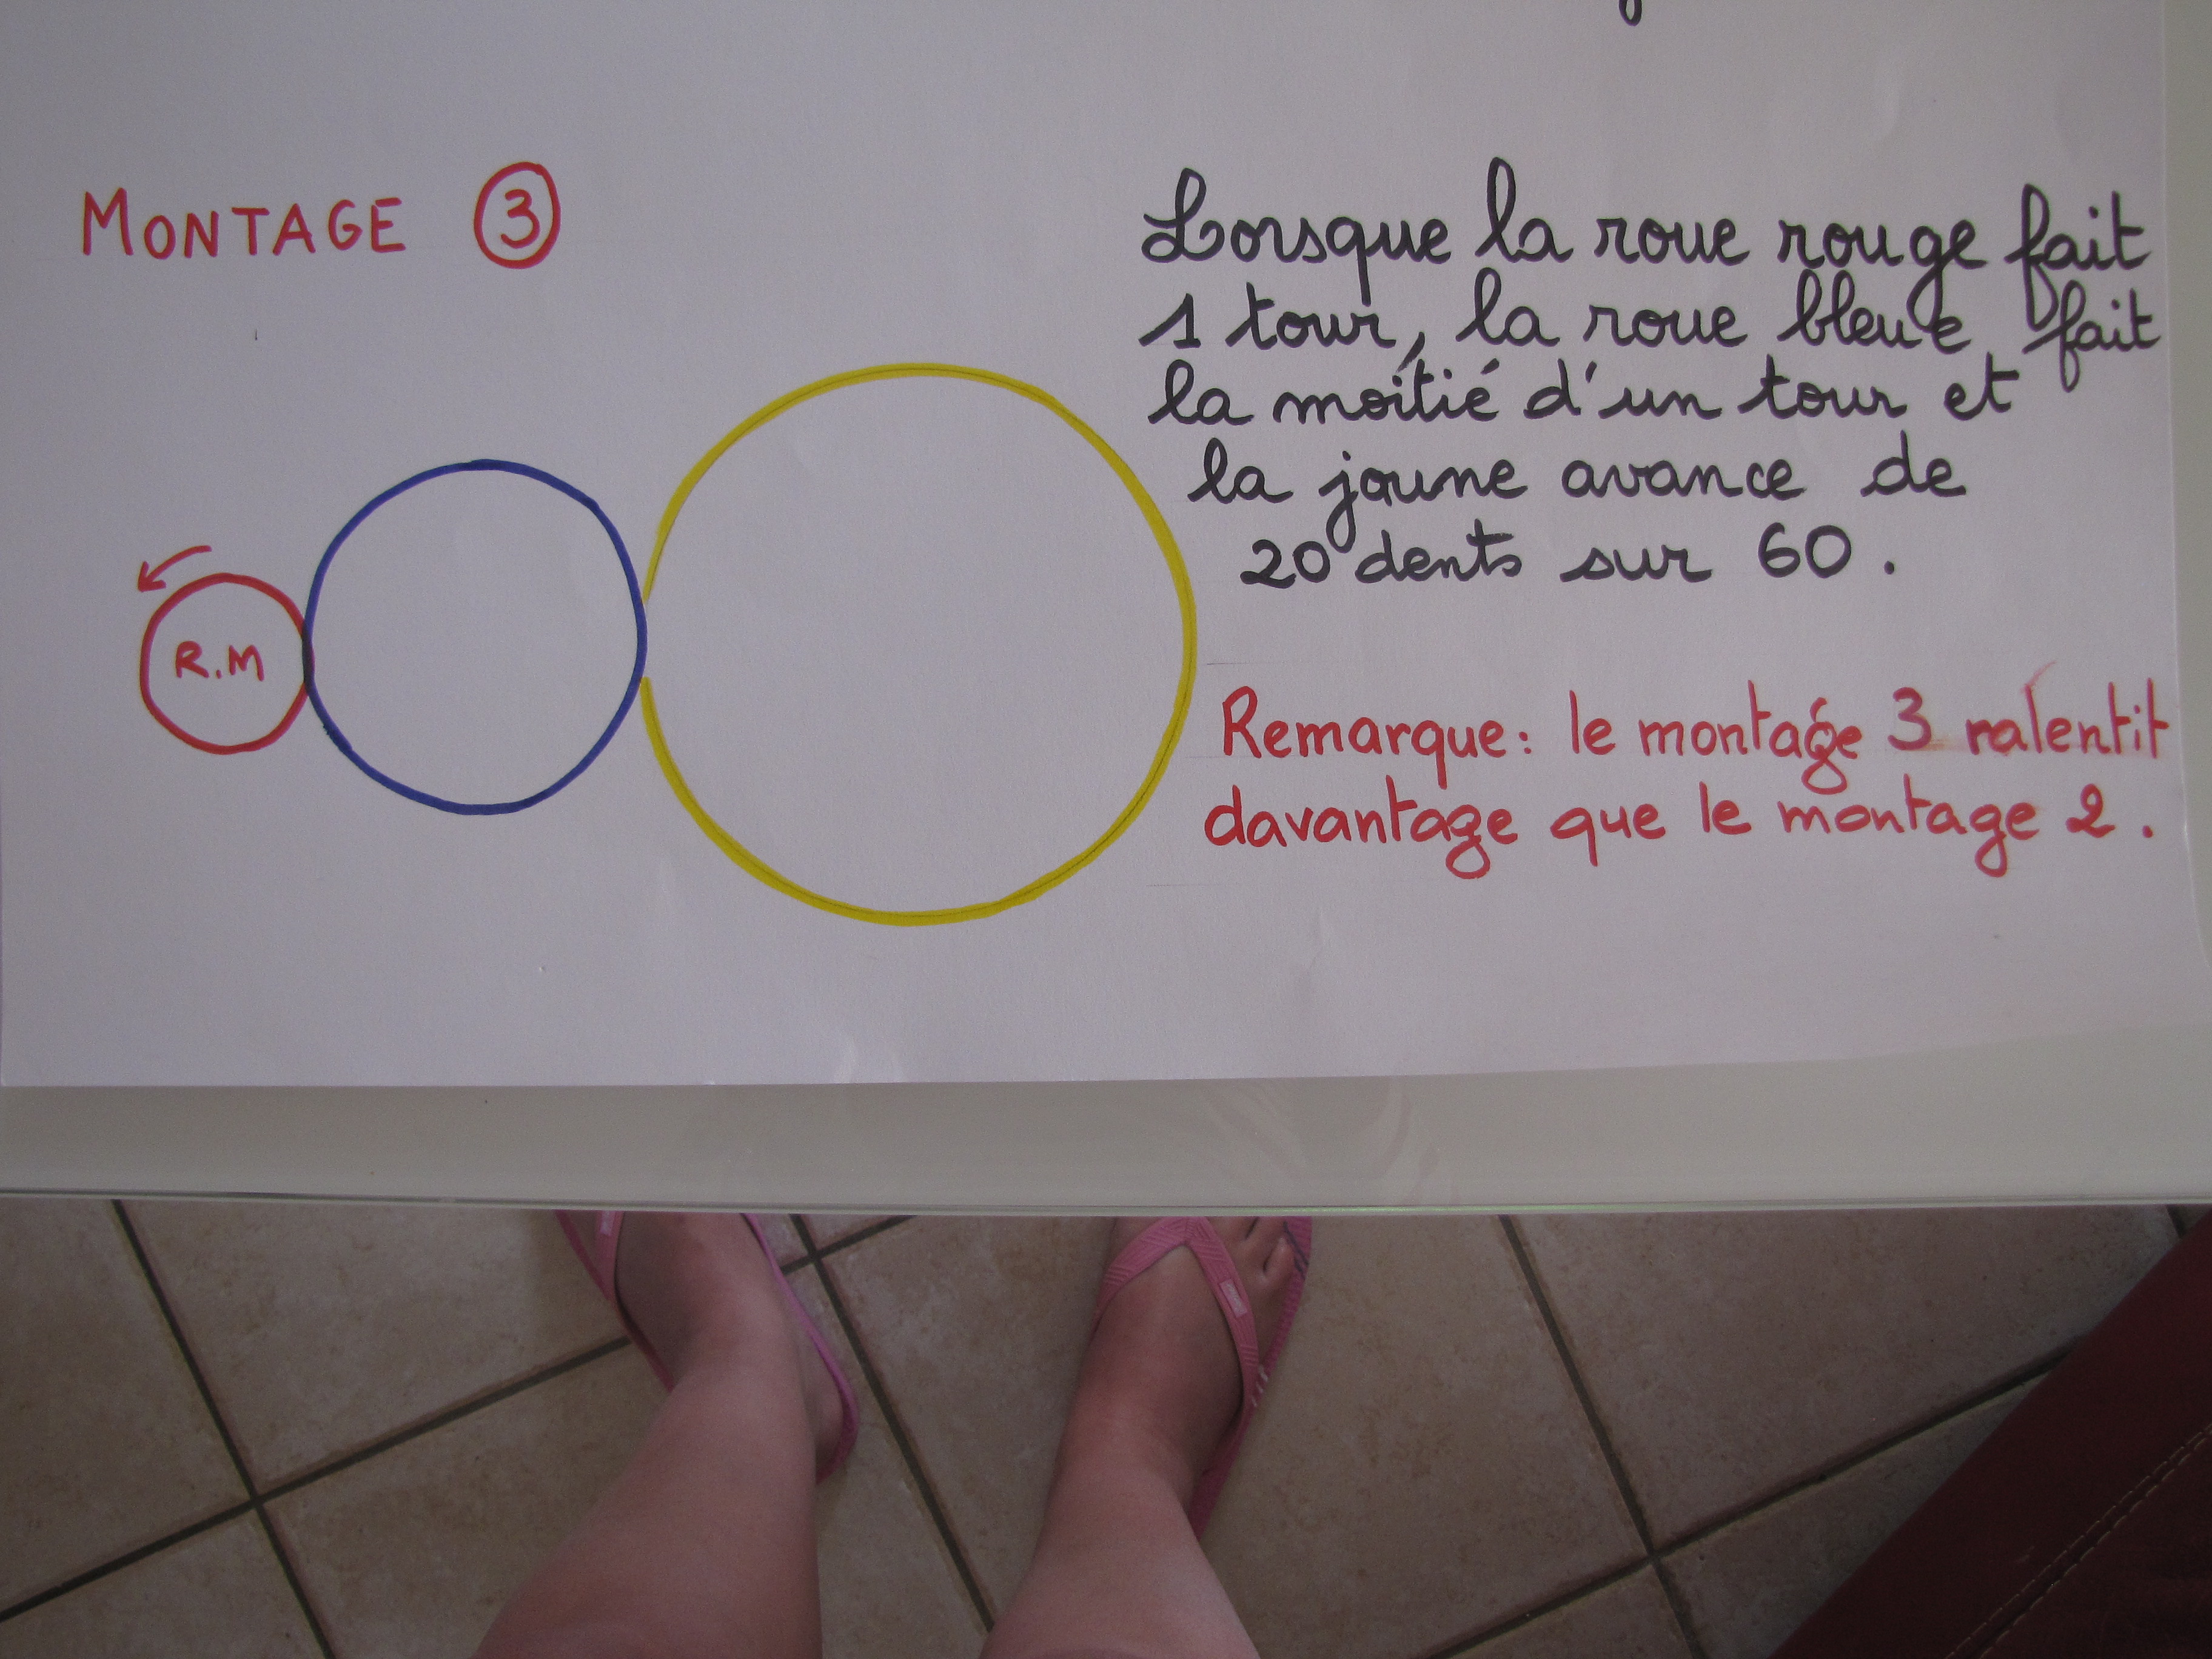 MONTAGE 3
Lorsque la roue rouge fait
1 tour, la roue bleue fait
la moitié d'un tour et
la jaune avance de
20 dents sur 60.
R.M
Remarque: le montage 3 ralentit
davantage que le montage 2.